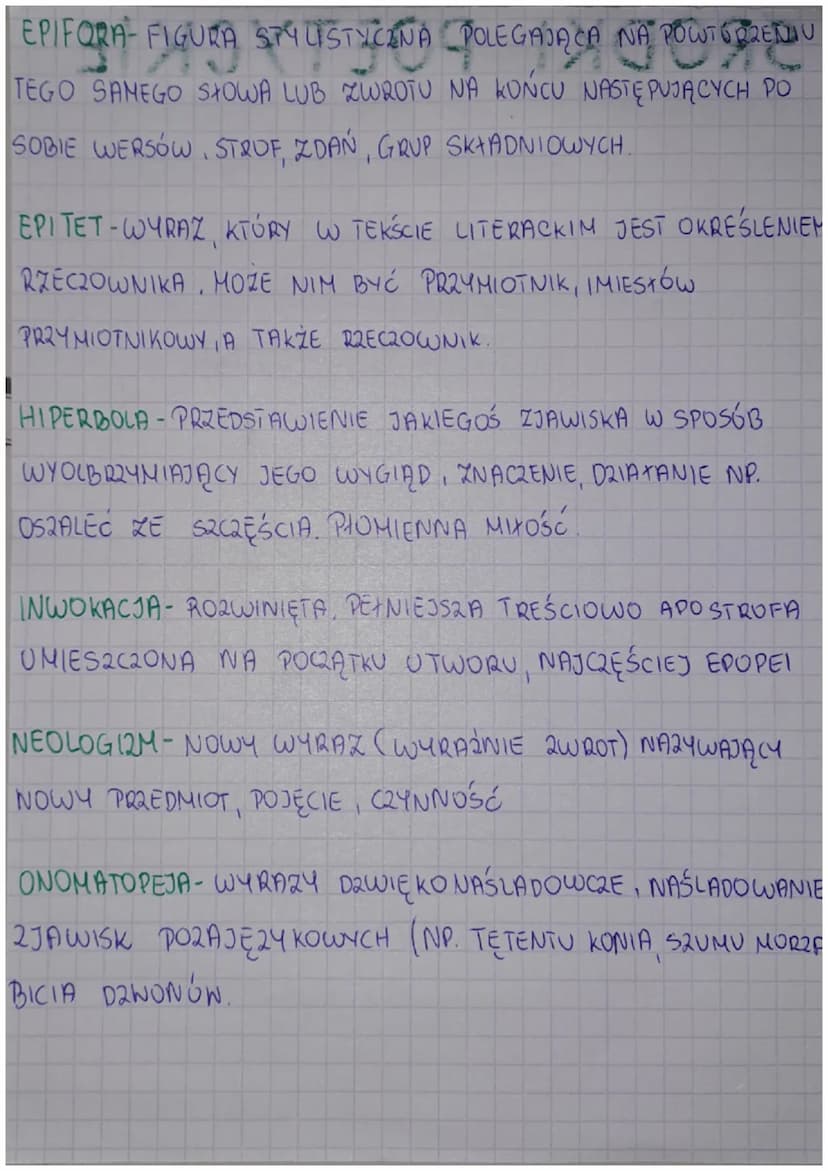 EPIFORA- FIGURA STYLISTYCZNA POLEGAJĄCA NA POWTÓRZENIU
TEGO SAMEGO SŁOWA LUB ZWROTU NA KOŃCU NASTĘPUJĄCYCH PO
SOBIE WERSÓW, STROF, ZDAŃ, GRUP SKŁADNIOWYCH.
EPITET - WYRAZ, KTÓRY W TEKŚCIE LITERACKIM JEST OKREŚLENIEM
RZECZOWNIKA. MOŻE NIM BYĆ PRZYMIOTNIK, IMIESŁÓW
PRZYMIOTNIKOWY, A TAKŻE RZECZOWNIK.
HIPERBOLA - PRZEDSTAWIENIE JAKIEGOŚ ZJAWISKA W SPOSÓB
WYOLBRZYMIAJĄCY JEGO WYGLĄD, ZNACZENIE, DZIAŁANIE NP.
OSZALEĆ ZE SZCZĘŚCIA. PŁOMIENNA MIŁOŚĆ.
INWOKACJA- ROZWINIĘTA, PEŁNIEJSZA TREŚCIOWO APOSTROFA
UMIESZCZONA NA POCZĄTKU UTWORU, NAJCZĘŚCIEJ EPOPEI
NEOLOGIZM- NOWY WYRAZ (WYRAŹNIE ZWROT) NAZYWAJĄCY
NOWY PRZEDMIOT, POJĘCIE, CZYNNOŚĆ
ONOMATOPEJA- WYRAZY DZWIĘKONAŚLADOWCZE, NAŚLADOWANIE
ZJAWISK POZAJĘZYKOWYCH (NP. TĘTENTU KONIA, SZUMU MORZA
BICIA DZWONÓW.